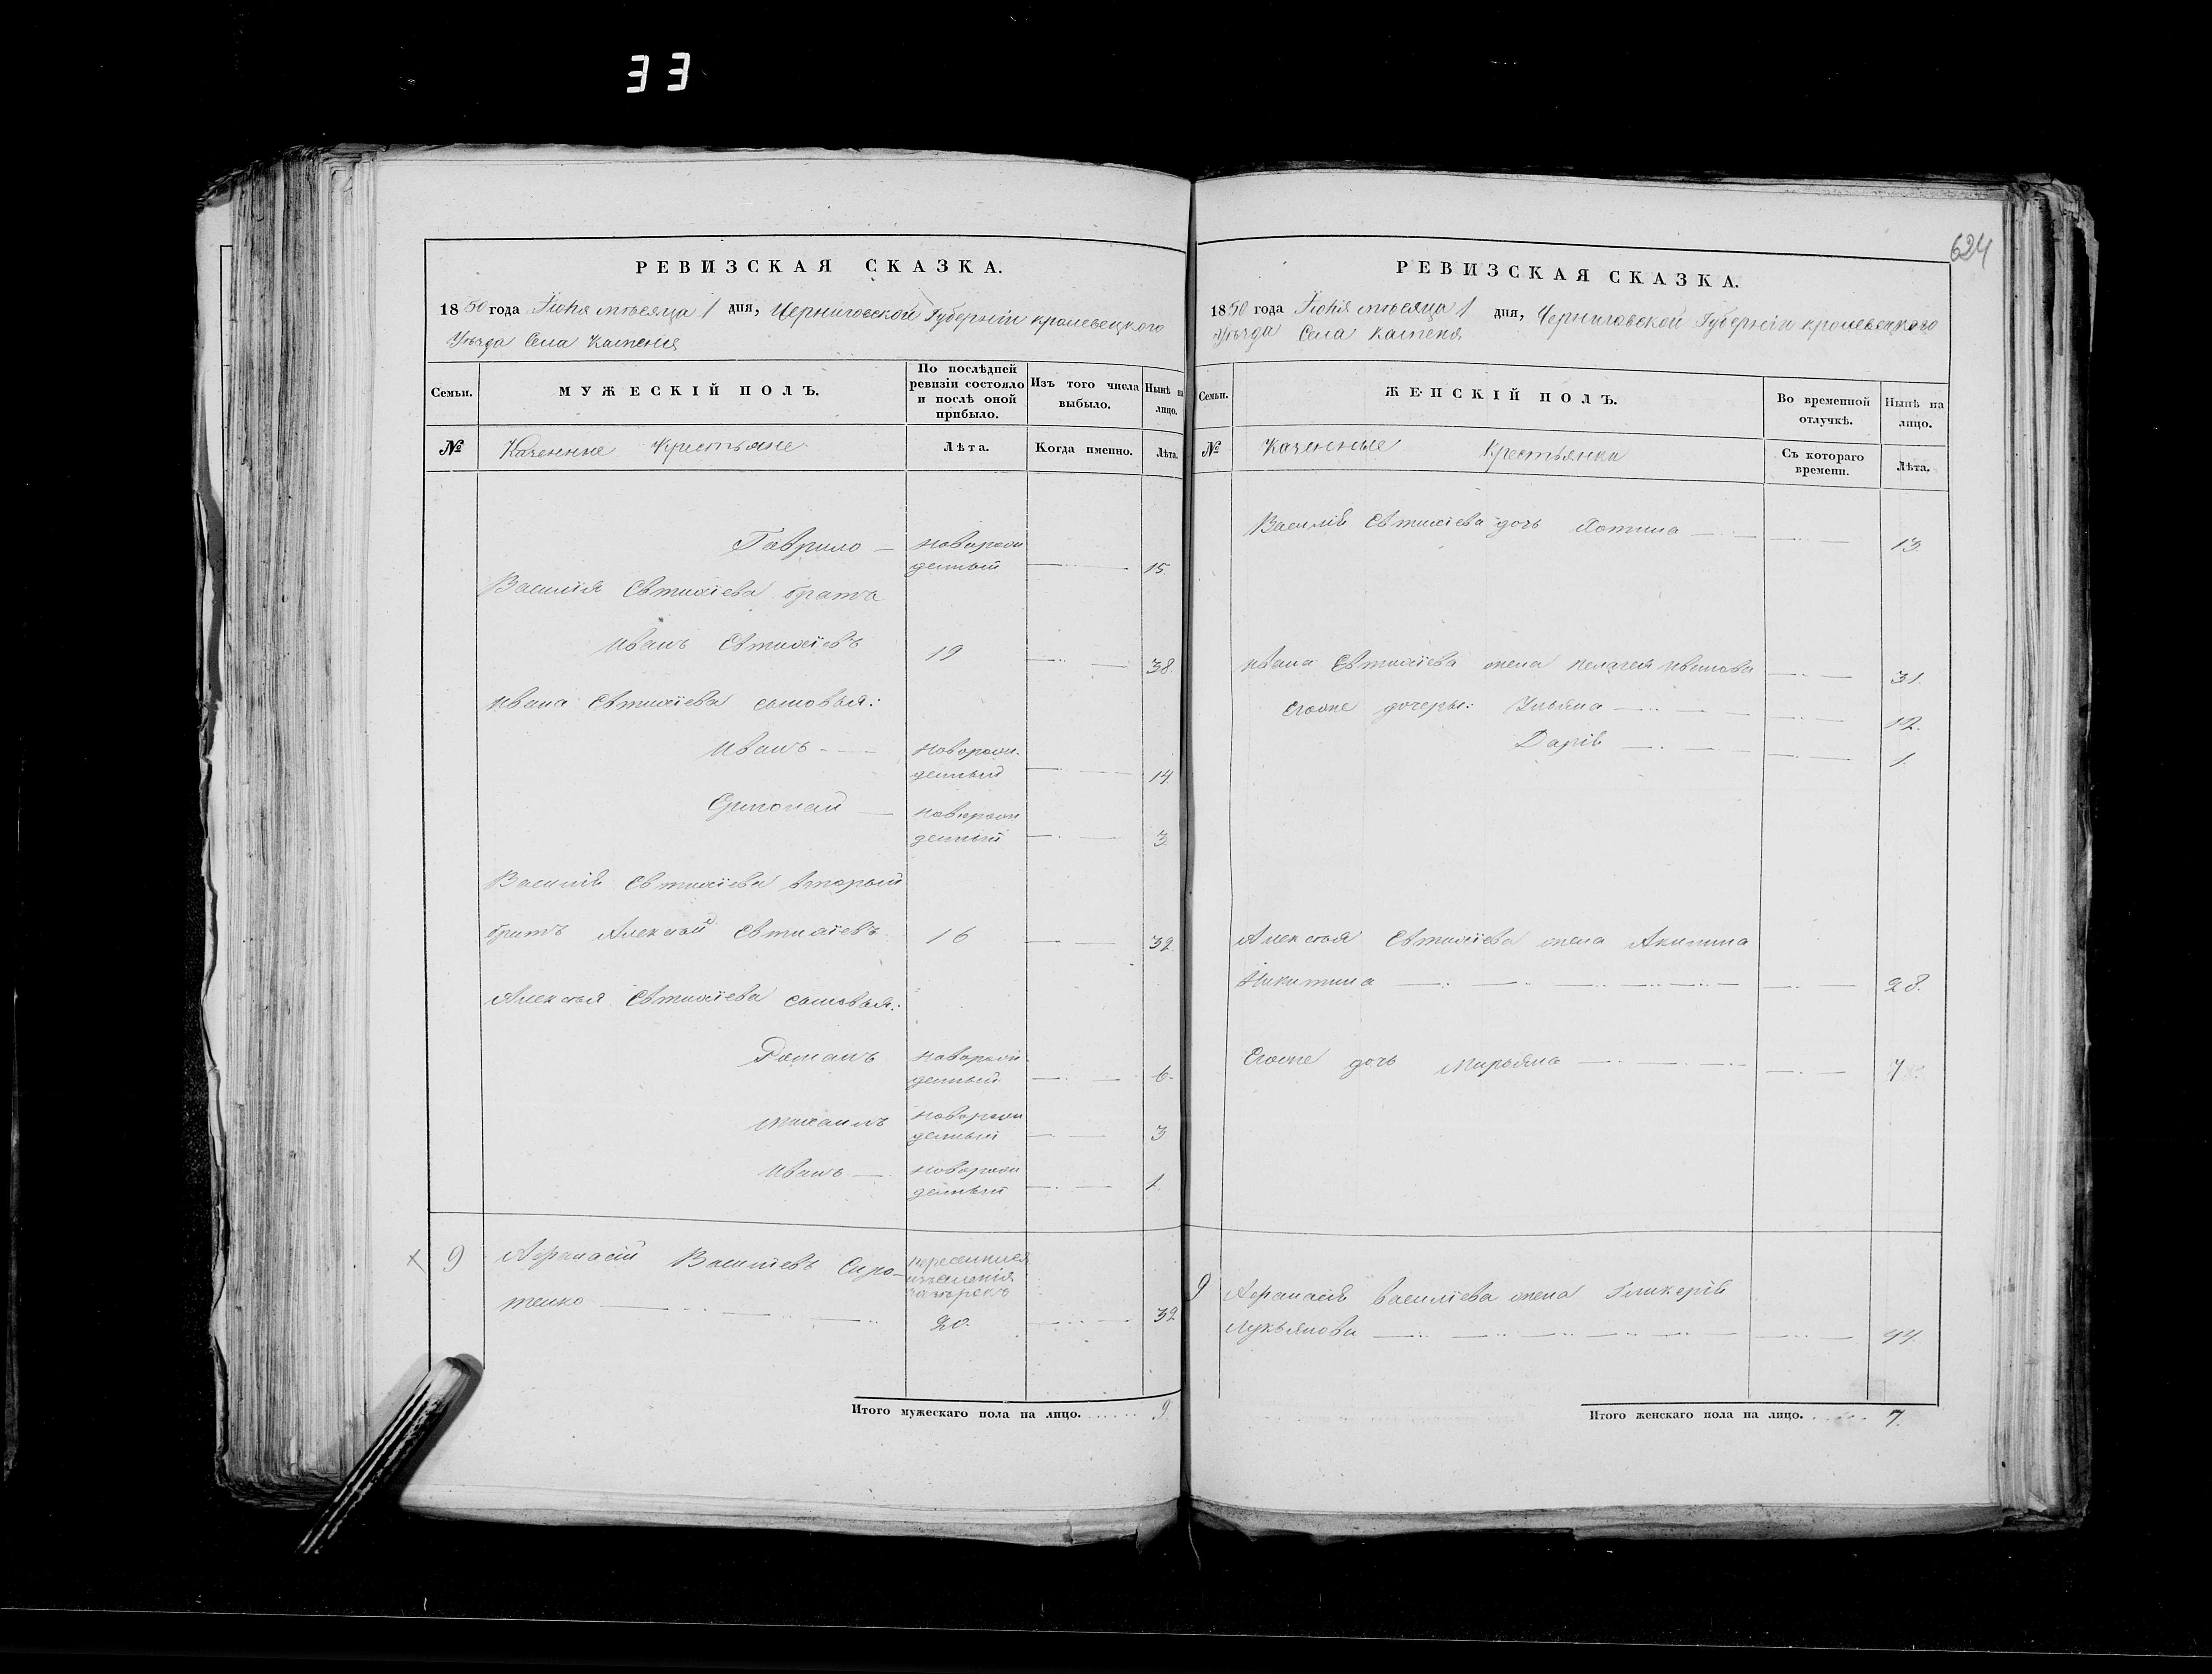 33
624
РЕВИЗСКАЯ СКАЗКА.
1850 года Іюня мѣсяца 1 дня, Черниговской Губерніи кролевецкого
Уѣзда Села Каменя
Семьи.
МУЖЕСКІЙ ПОЛЪ.
По послѣдней ревизіи состояло и послѣ оной прибыло.
Изъ того числа выбыло.
Нынѣ на лицо.
№
Казенные Крестьяне
Лѣта.
Когда именно.
Лѣта.
Гаврило — новорож
денный 15.
Василія Евтихіева брата
Иванъ Евтихіевъ 19 38.
Ивана Евтихіева сыновья:
Иванъ новорож.
денный 14.
новорож
денный 3.
Василія Евтихіева вторый
братъ Алексѣй Евтихіевъ 16 32.
Алексѣя Евтихіева сыновья:
Романъ новорож
денный 6.
Михаилъ новорож
денный 3
Иванъ новорож
денный 1.
9 Афанасій Васильевъ Сиро-
тенко 20. 32
Итого мужескаго пола на лицо. 9.
РЕВИЗСКАЯ СКАЗКА.
1850 года Іюня мѣсяца 1 дня, Черниговской Губерніи кролевецкого
Уѣзда Села Каменя
Семьи.
ЖЕНСКІЙ ПОЛЪ.
Во временной отлучкѣ.
Нынѣ на лицо.
№
Казенные Крестьянки
Съ котораго времени.
Лѣта.
Василія Евтихіева дочь 13
Ивана Евтихіева жена Пелагея Иванова 31.
Егоже дочеры: Ульяна 12.
Дарія 1.
Алексѣя Евтихіева жена Акилина
Никитина 28.
Егоже дочь Марьяна 7.
9 Афанасія Василіева жена Гликерія
Лукьянова 44.
Итого женскаго пола на лицо. 7.